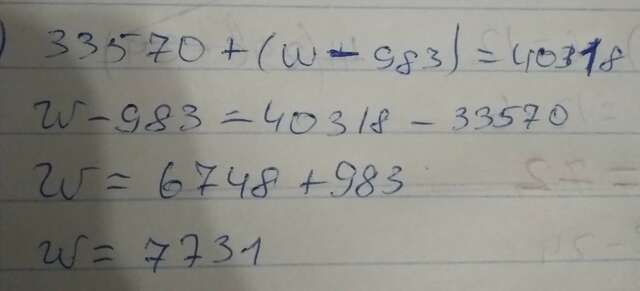 ) 33570 + (W - 983) = 40318
W - 983 = 40318 - 33570
W = 6748 + 983
W = 7731